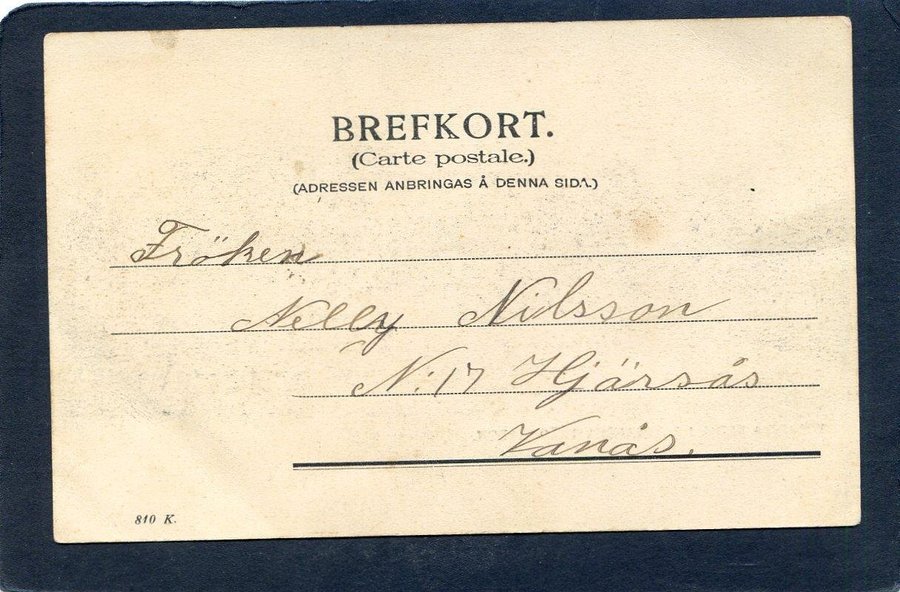 BREFKORT.
(Carte postale.)
(ADRESSEN ANBRINGAS Å DENNA SIDA.)
Fröken
Nelly Nilsson
N:17 Hjärsås
Vanås.
810 K.